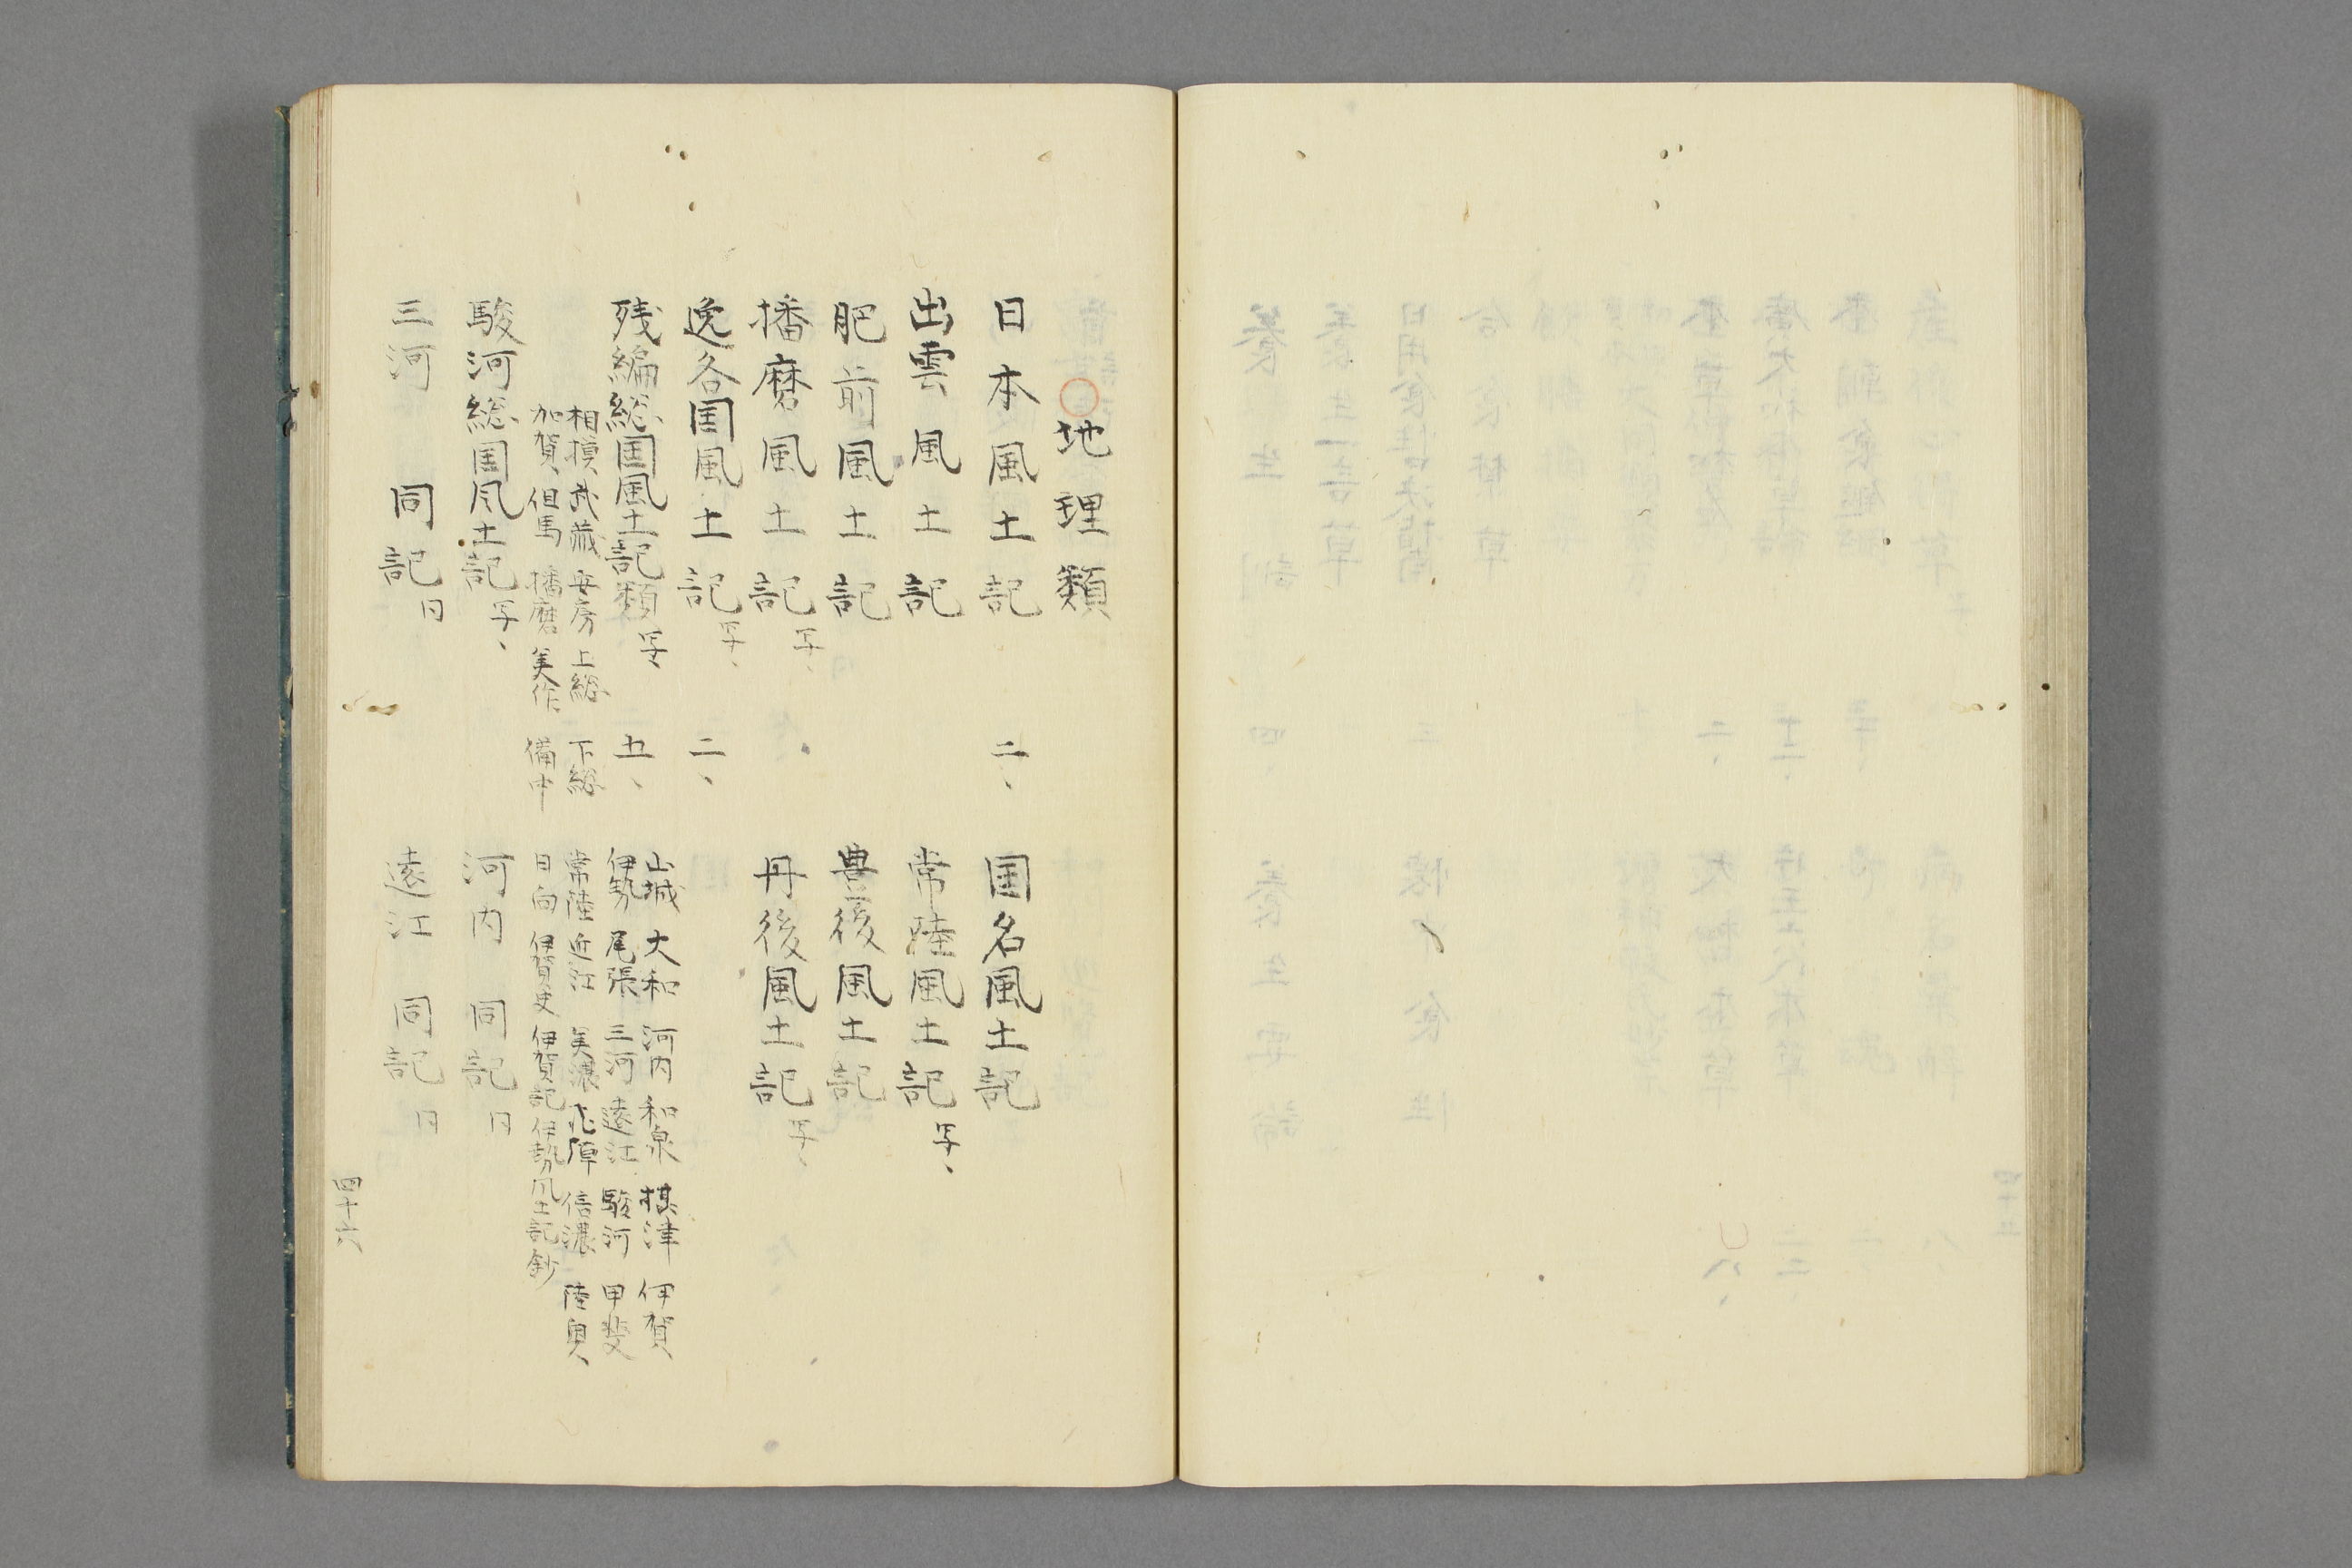 地理類
日本風土記 二、
国名風土記
出雲風土記
常陸風土記 写、
肥前風土記
豊後風土記
播磨風土記 写、
丹後風土記 写、
逸各国風土記 写、 二、
残編総国風土記類 写、 五、
山城 大和 河内 和泉 摂津 伊賀
伊勢 尾張 三河 遠江 駿河 甲斐
相摸 武蔵 安房 上総 下総
常陸 近江 美濃 飛騨 信濃 陸奥、
加賀、但馬 播磨 美作、備中
日向 伊賀史 伊賀記 伊勢風土記鈔
駿河総国風土記 写、
河内 同記 同
三河 同記 同
遠江 同記 同
四十六